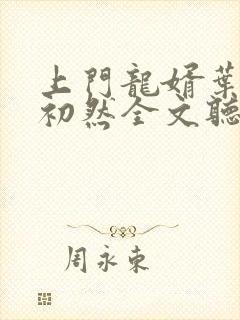 上門龍婿葉
初然全文聽
周永東